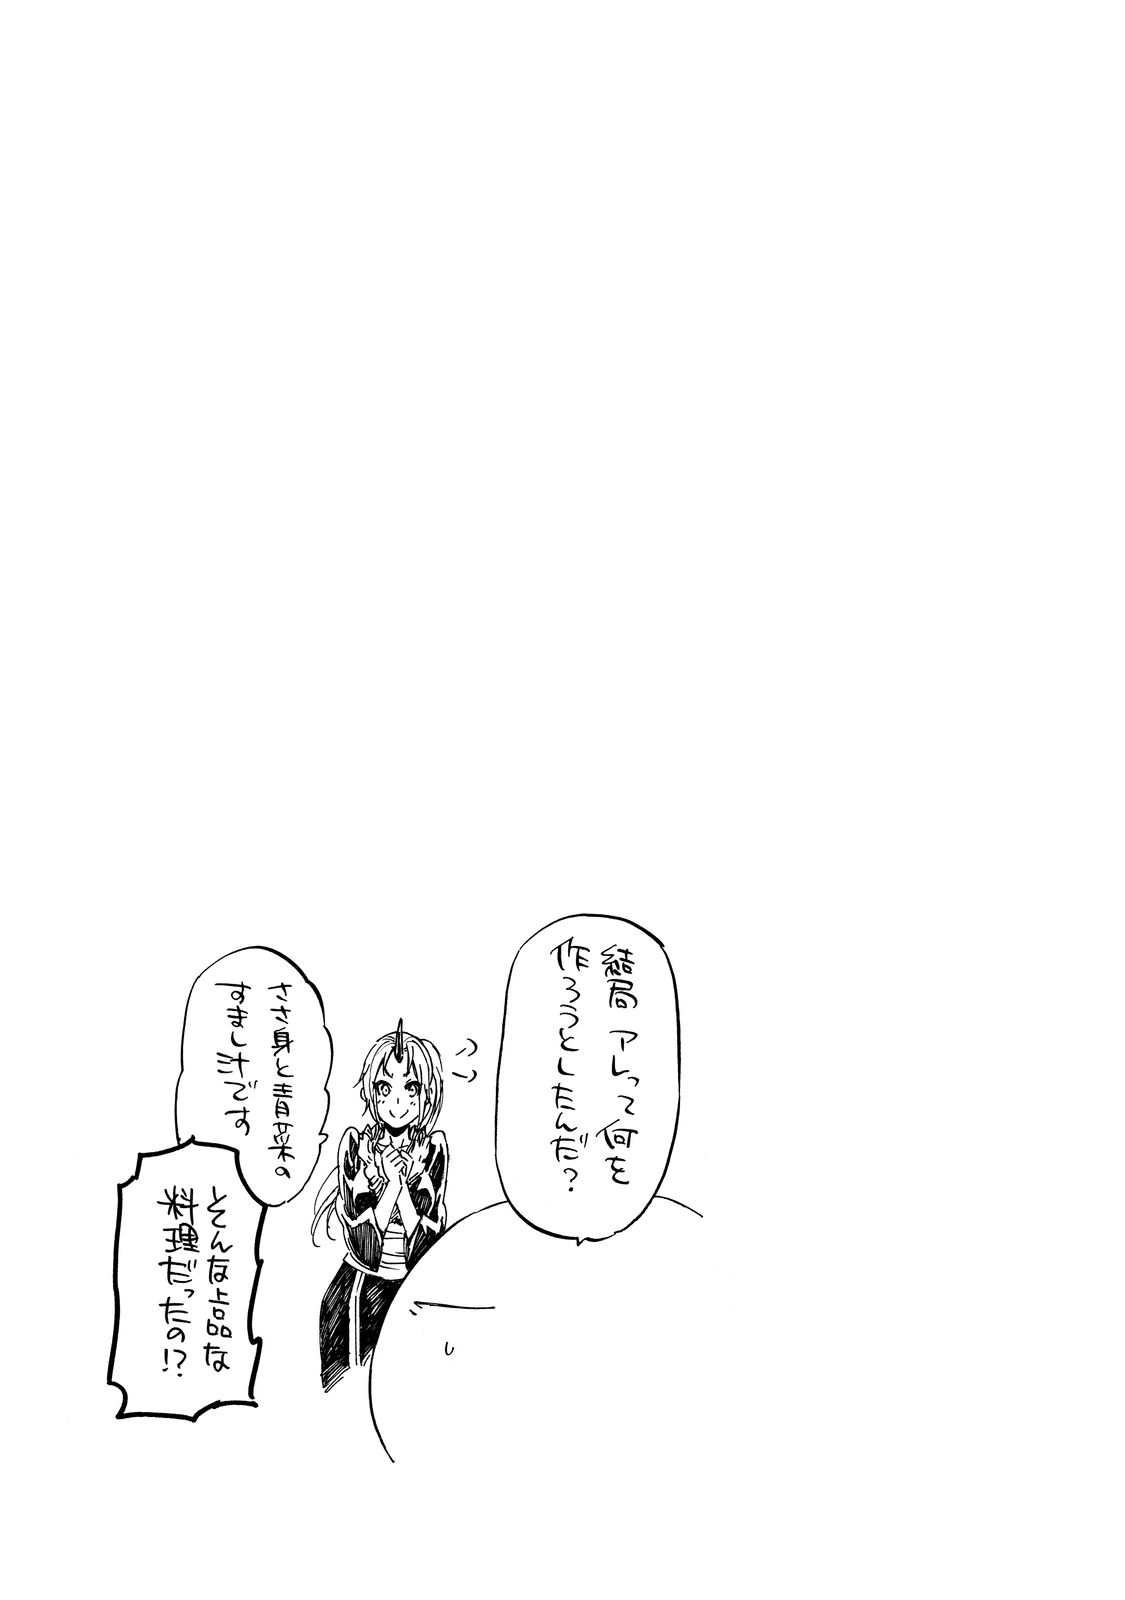 結局 アレって何を
作ろうとしたんだ?
ささ身と青菜の
すまし汁です
そんな上品な
料理だったの!?